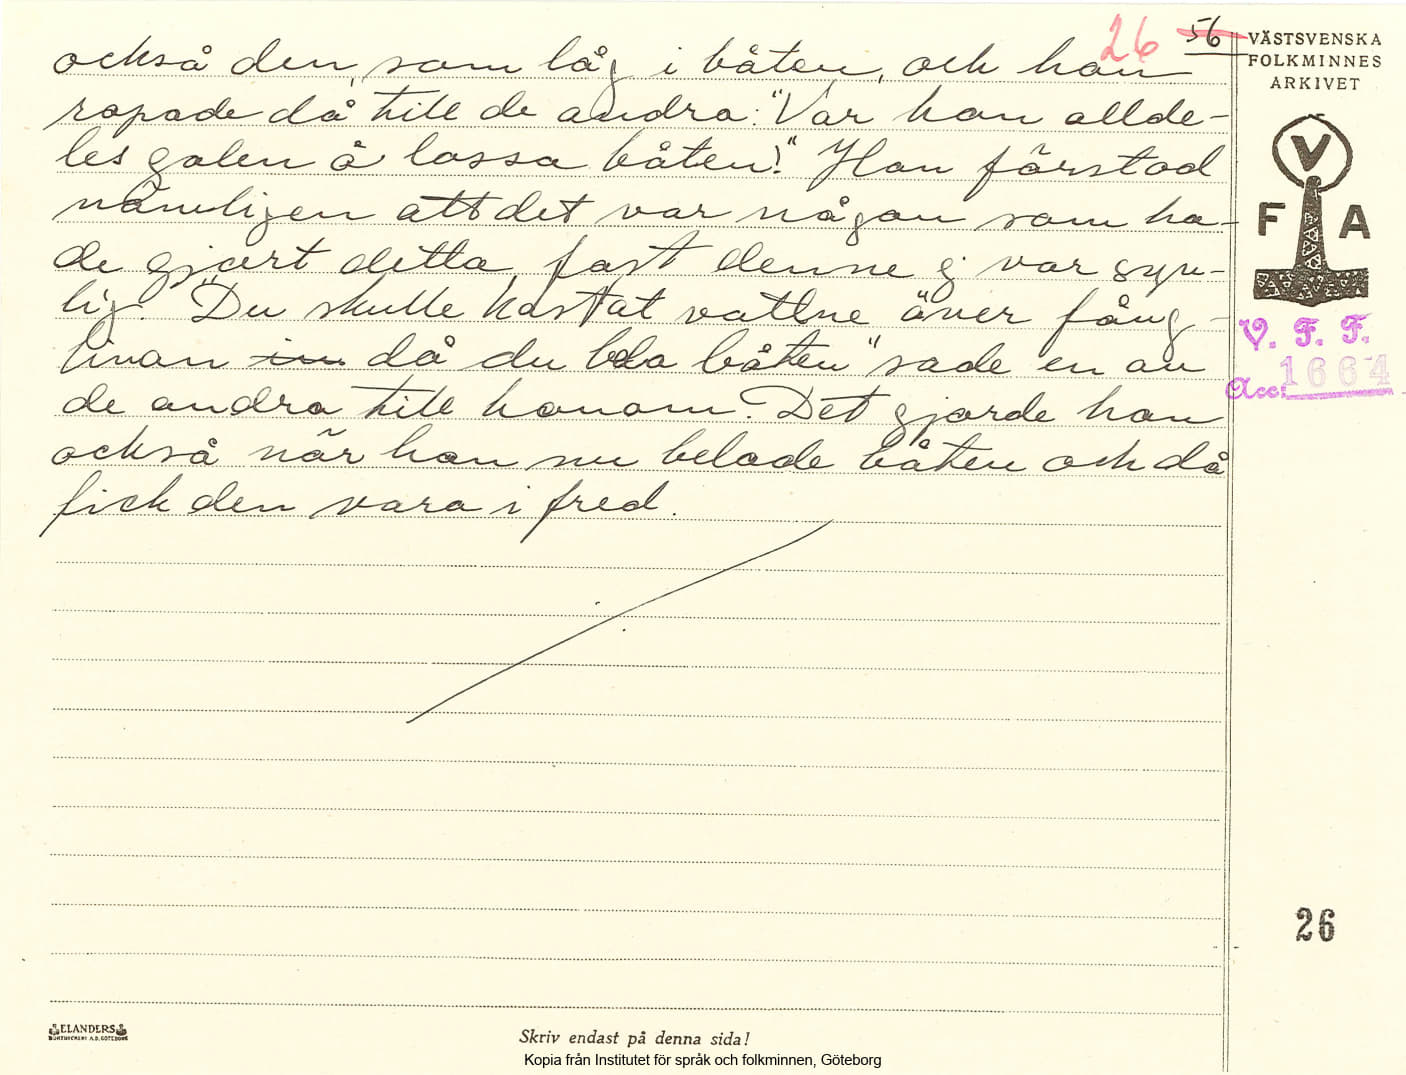 26 56
också den, som låg i båten, och han
ropade då till de andra: "Var han allde-
les galen å lassa båten!" Han förstod
nämligen att det var någon som ha-
de gjort detta, fast denne ej var syn-
lig. "Du skulle kastat vattne över fång-
linan då du la båten" sade en av
de andra till honom. Det gjorde han
också när han nu belade båten och då
fick den vara i fred.
VÄSTSVENSKA
FOLKMINNES
ARKIVET
V
F A
V. F. F.
Acc: 1664
26
ELANDERS
BOKTRYCKERI A.B. GÖTEBORG
Skriv endast på denna sida!
Kopia från Institutet för språk och folkminnen, Göteborg